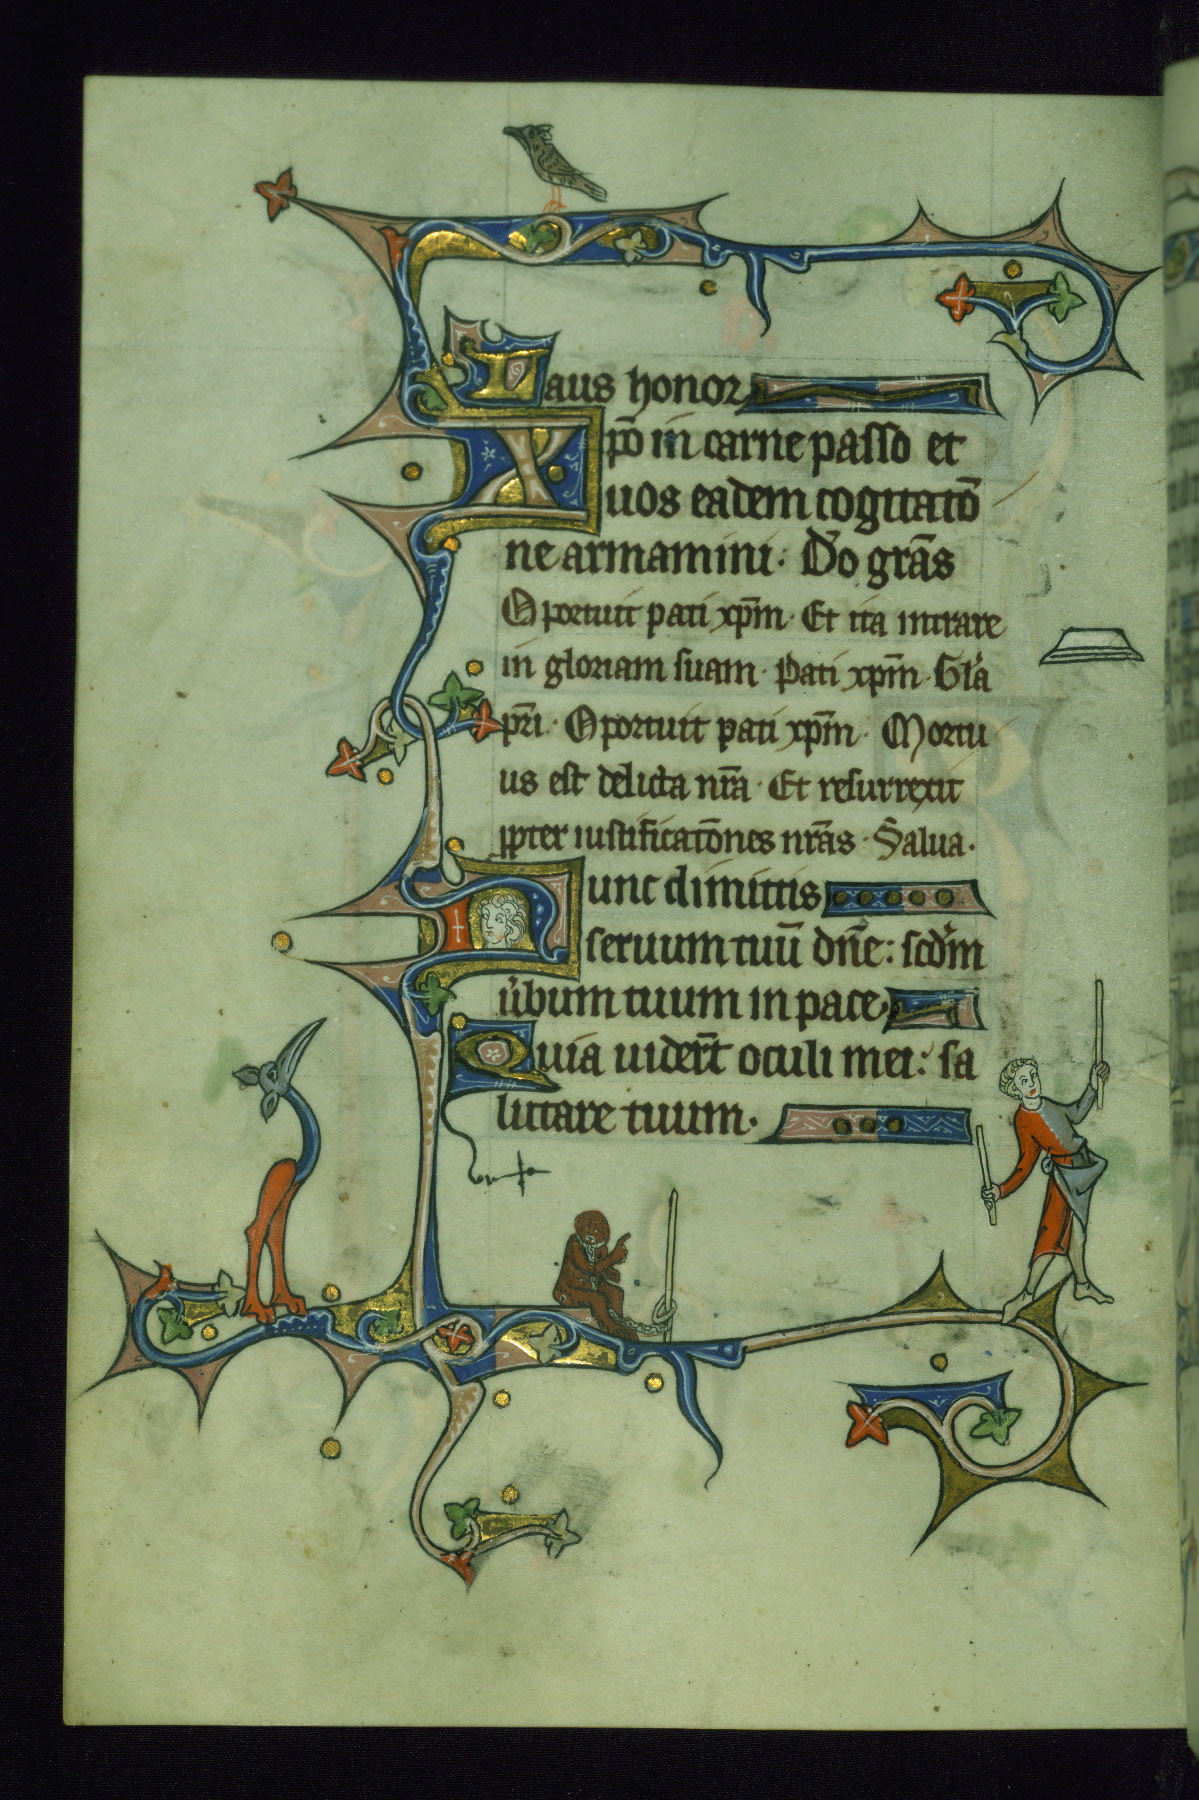 Laus honor
Xpō in carne passo et
uos eadem cogitatō
ne armamini · Dō grās
Oportuit pati xpm̄ · Et ita intrare
in gloriam suam · Pati xpm̄ · Glā
pr̄i · Oportuit pati xpm̄ · Mortu
us est delicta nr̄a · Et resurrexit
ꝓpter iustificatōnes nr̄as · Salua ·
Nunc dimittis
seruum tuū dn̄e : scdm̄
ūbum tuum in pace
Quia uider̄t oculi mei : sa
lutare tuum ·